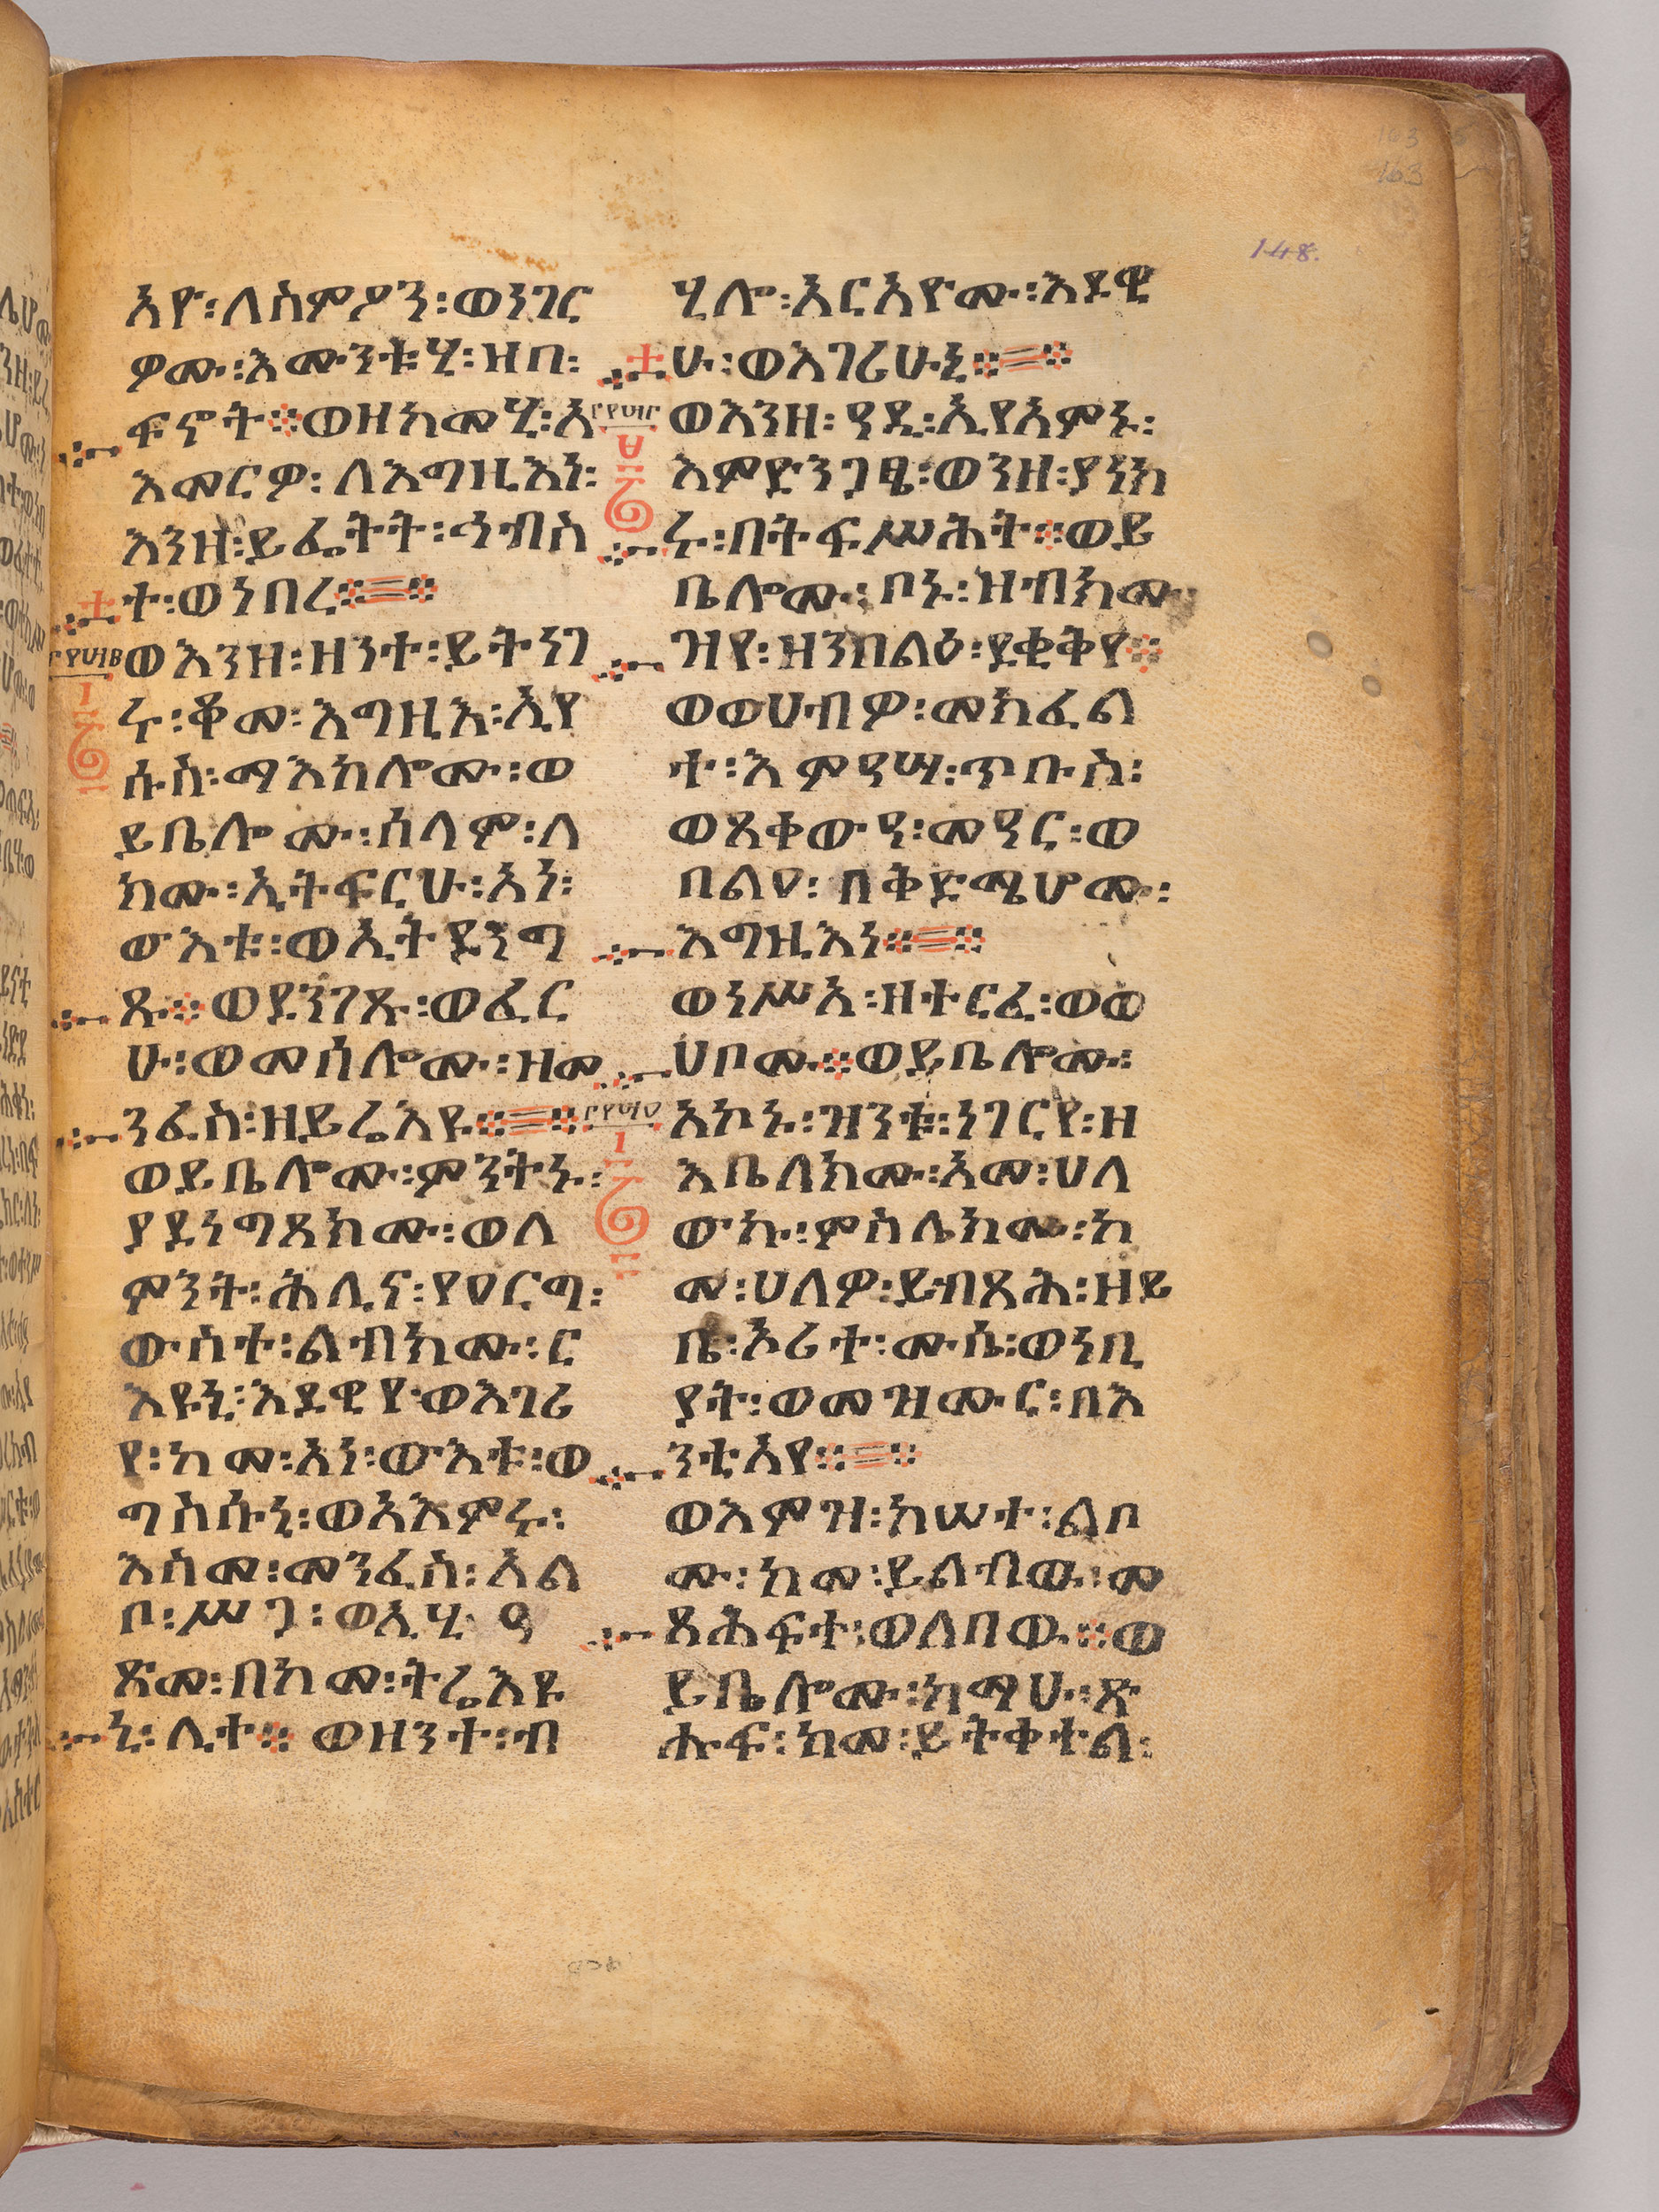 148.
አየ፡ለስምዖን፡ወነገር
ዎሙ፡እሙንቱሂ፡ዘበ፡
ፍኖት፨ወዘከመሂ፡አ
እመርዎ፡ለእግዚእነ፡
እንዘ፡ይፌትት፡ኅብስ
ተ፡ወነበረ፨
ወእንዘ፡ዘንተ፡ይትነገ
ሩ፡ቆመ፡እግዚእ፡ኢየ
ሱስ፡ማእከሎሙ፡ወ
ይቤሎሙ፡ሰላም፡ለ
ክሙ፡ኢትፍርሁ፡አነ፡
ውእቱ፡ወኢትደንግ
ጹ፨ወደንገጹ፡ወፈር
ሁ፡ወመሰሎሙ፡ዘመ
ንፈስ፡ዘይሬእዩ፨
ወይቤሎሙ፡ምንትኑ፡
ያደነግጸክሙ፡ወለ
ምንት፡ሕሊና፡የዐርግ፡
ውስተ፡ልብክሙ፡ር
እዩኒ፡እደዊየ፡ወእገሪ
የ፡ከመ፡አነ፡ውእቱ፡ወ
ግስሱኒ፡ወአእምሩ፡
እስመ፡መንፈስ፡አል
ቦ፡ሥጋ፡ወኢሂ ዓ
ጽመ፡በከመ፡ትሬእዩ
ኒ፡ሊተ፨ወዘንተ፡ብ
ሂሎ፡አርአዮሙ፡እደዊ
ሁ፡ወእገሪሁኒ፨
ወእንዘ፡ዓዲ፡ኢየአምኑ፡
እምድንጋፄ፡ወንዘ፡ያነክ
ሩ፡በትፍሥሕት፨ወይ
ቤሎሙ፡ቦኑ፡ዝብክሙ፡
ዝየ፡ዘንበልዕ፡ደቂቅየ፨
ወወሀብዎ፡መክፈል
ተ፡እምዓሣ፡ጥቡስ፡
ወጸቀውዓ፡መዓር፡ወ
በልዐ፡በቅድሜሆሙ፡
እግዚእነ፨
ወነሥአ፡ዘተርፈ፡ወወ
ሀቦሙ፨ወይቤሎሙ፡
አኮኑ፡ዝንቱ፡ነገርየ፡ዘ
እቤለክሙ፡አመ፡ሀለ
ውኩ፡ምስሌክሙ፡ከ
መ፡ሀለዎ፡ይብጻሕ፡ዘይ
ቤ፡ኦሪተ፡ሙሴ፡ወነቢ
ያት፡ወመዝሙር፡በእ
ንቲአየ፨
ወእምዝ፡ከሠተ፡ልቦ
ሙ፡ከመ፡ይልብዉ፡መ
ጻሕፍተ፡ወለበዉ፨ወ
ይቤሎሙ፡ከማሁ፡ጽ
ሑፍ፡ከመ፡ይትቀተል፡